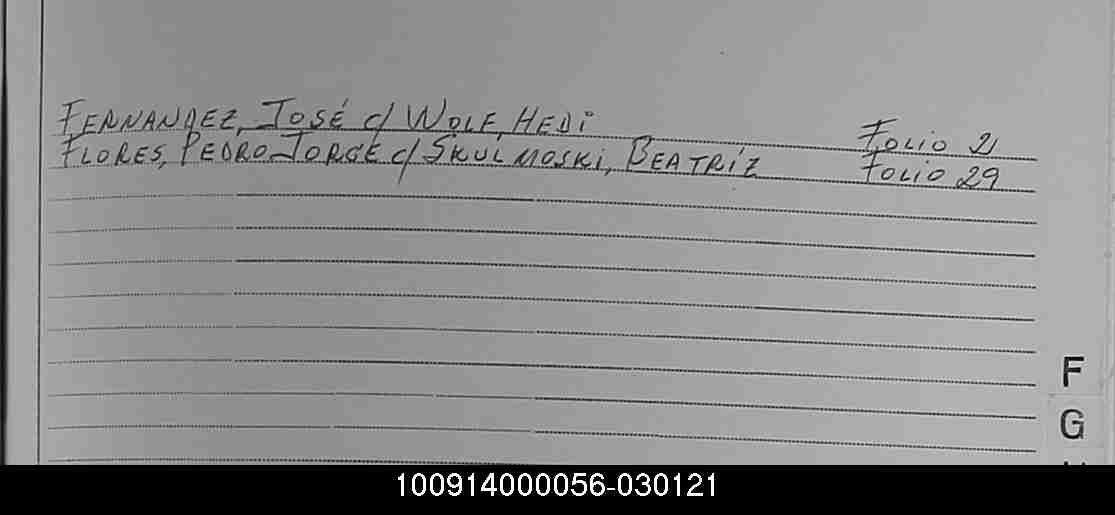 FERNANDEZ, JOSÉ c/ WOLF, HEDI Folio 21
FLORES, PEDRO JORGE c/ SKULMOSKI, BEATRÍZ Folio 29
F
G
100914000056-030121